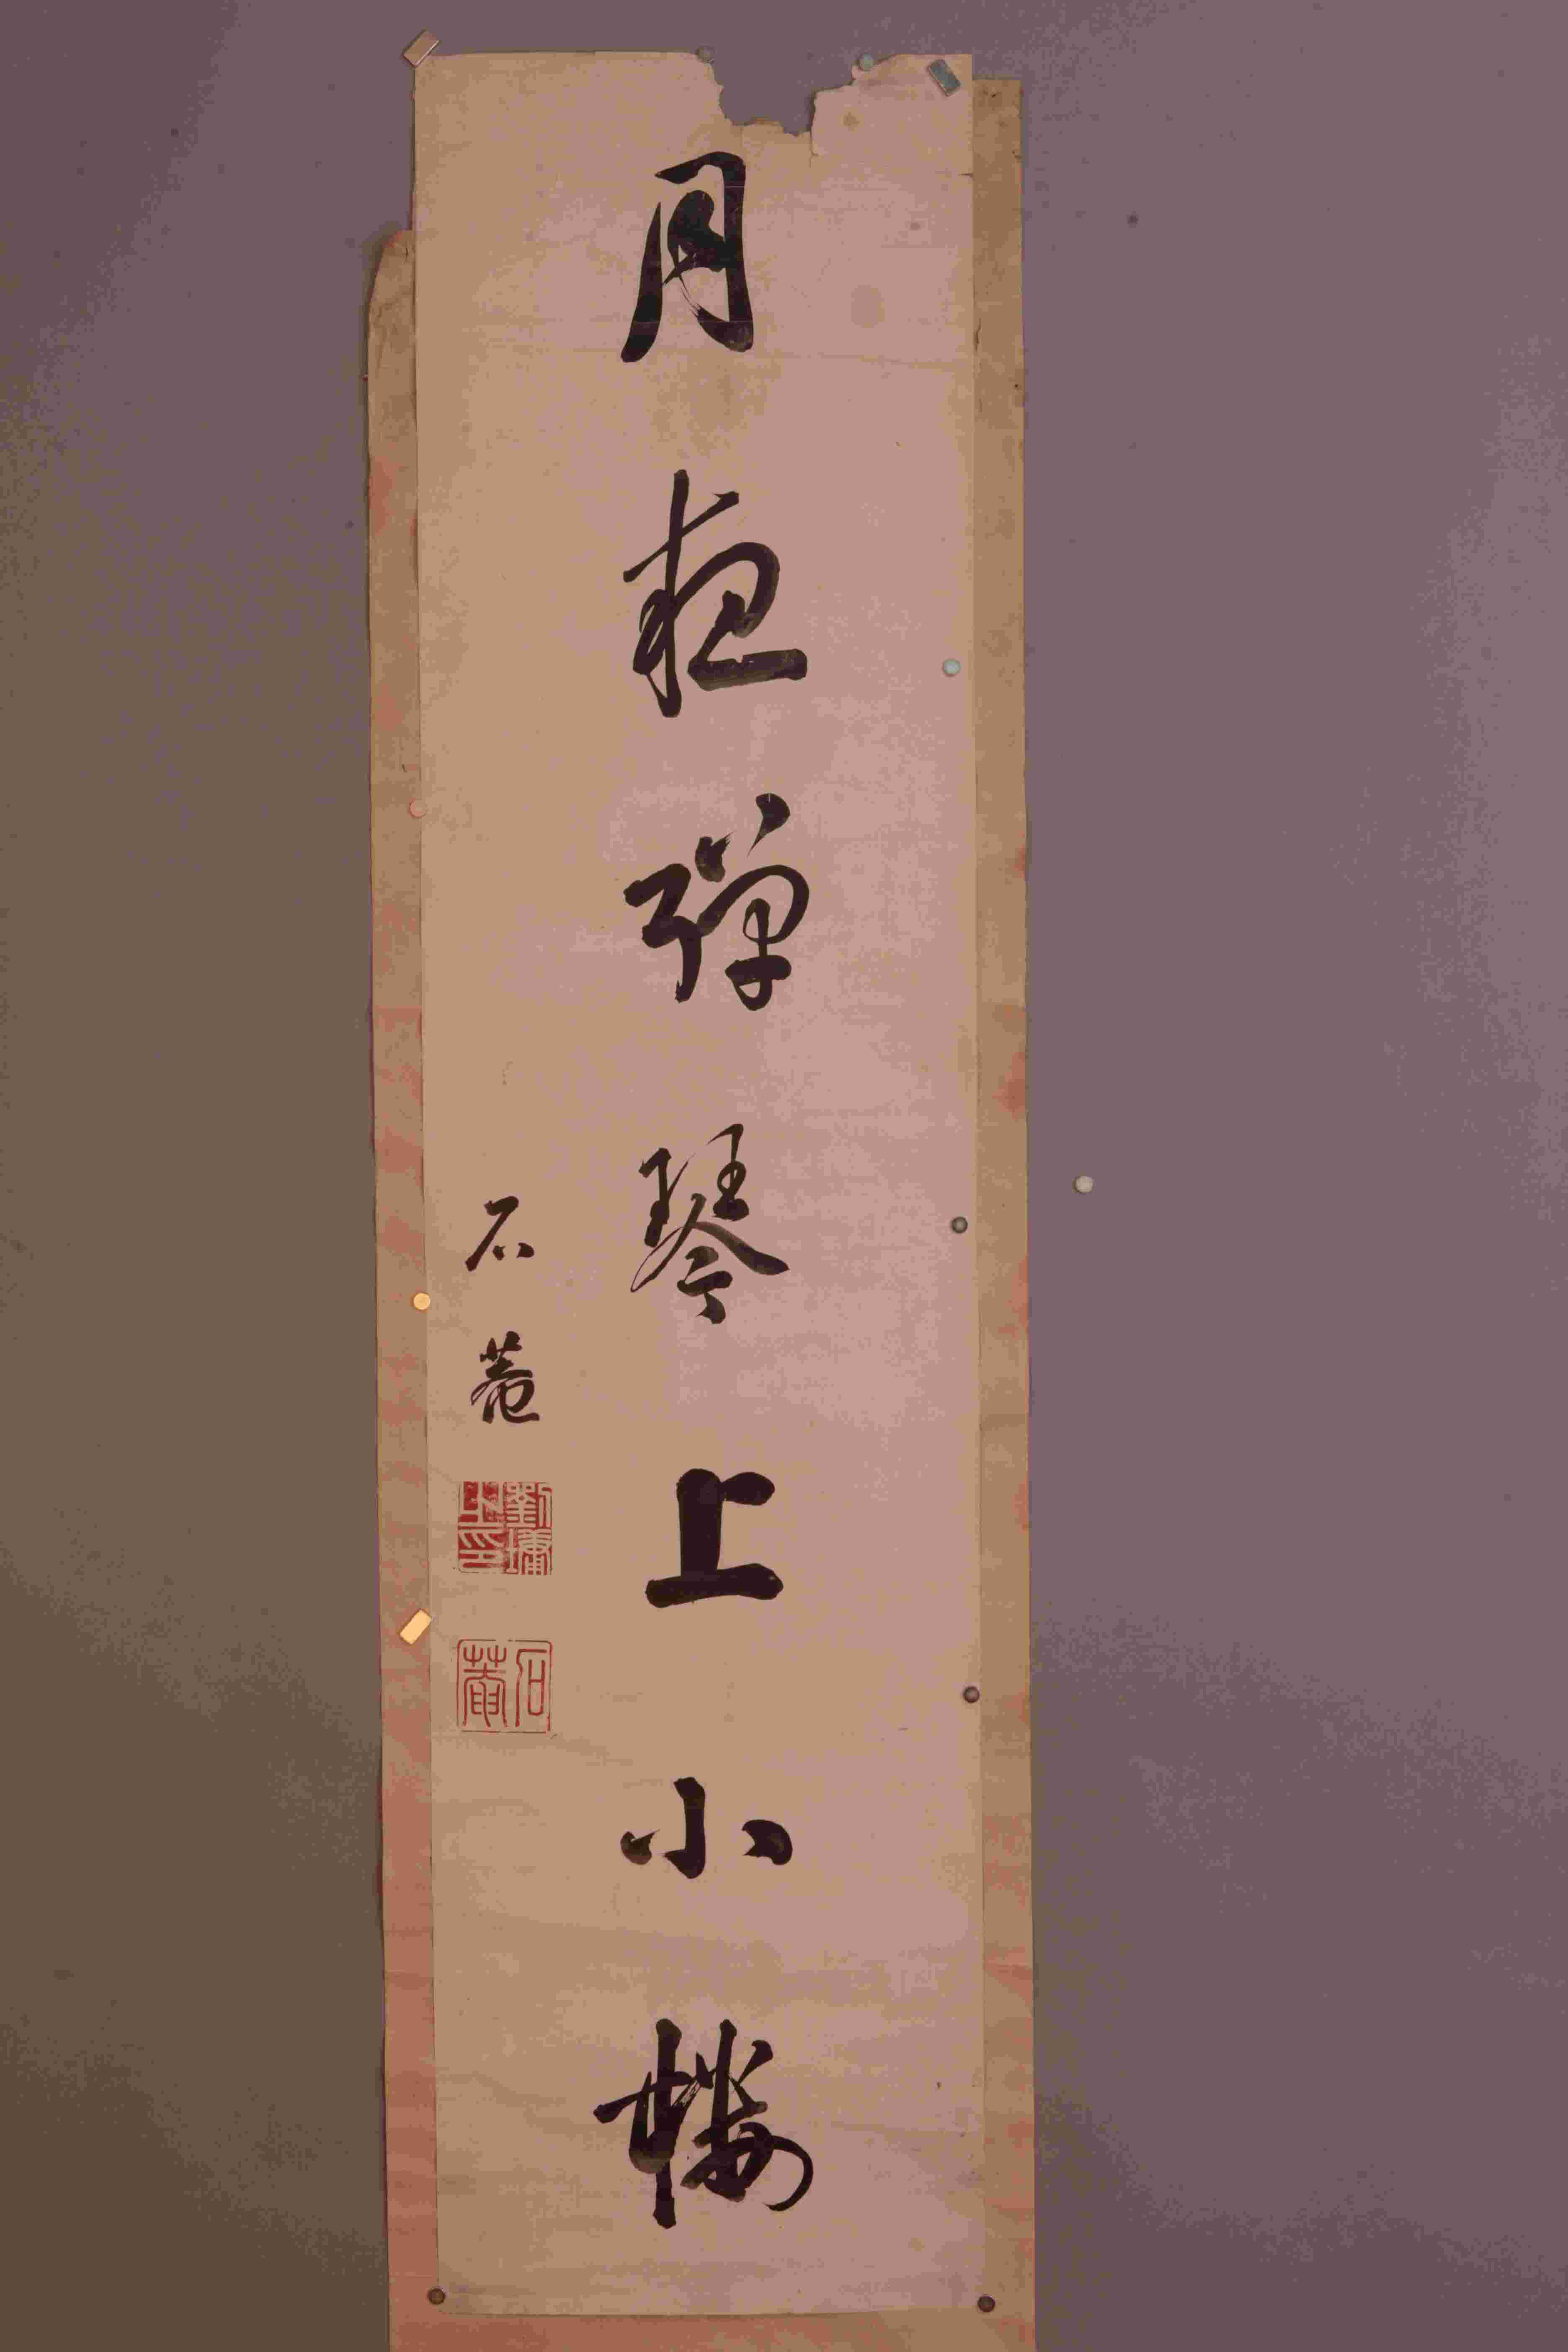 月夜彈琴上小樓
石菴
劉墉之印
石菴